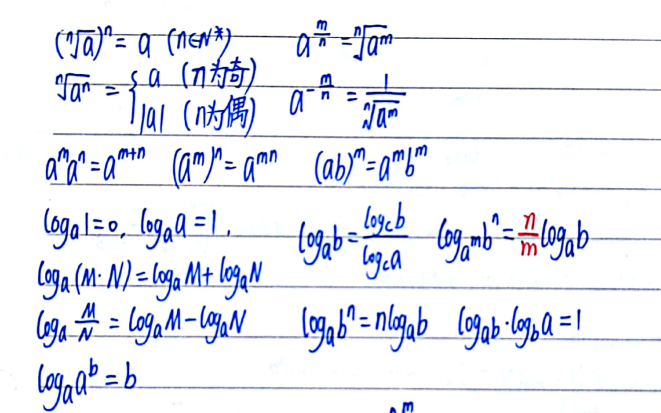 (ⁿ√a)ⁿ = a (n∈N*)  a^(m/n) = ⁿ√(a^m)
ⁿ√(aⁿ) = { a (n为奇)  |a| (n为偶)  a^(-m/n) = 1/ⁿ√(a^m)
a^m a^n = a^(m+n)  (a^m)^n = a^(mn)  (ab)^m = a^m b^m
log_a 1 = 0, log_a a = 1,  log_a b = log_c b / log_c a  log_(a^m) b^n = n/m log_a b
log_a (M·N) = log_a M + log_a N
log_a M/N = log_a M - log_a N  log_a b^n = n log_a b  log_a b · log_b a = 1
log_a a^b = b